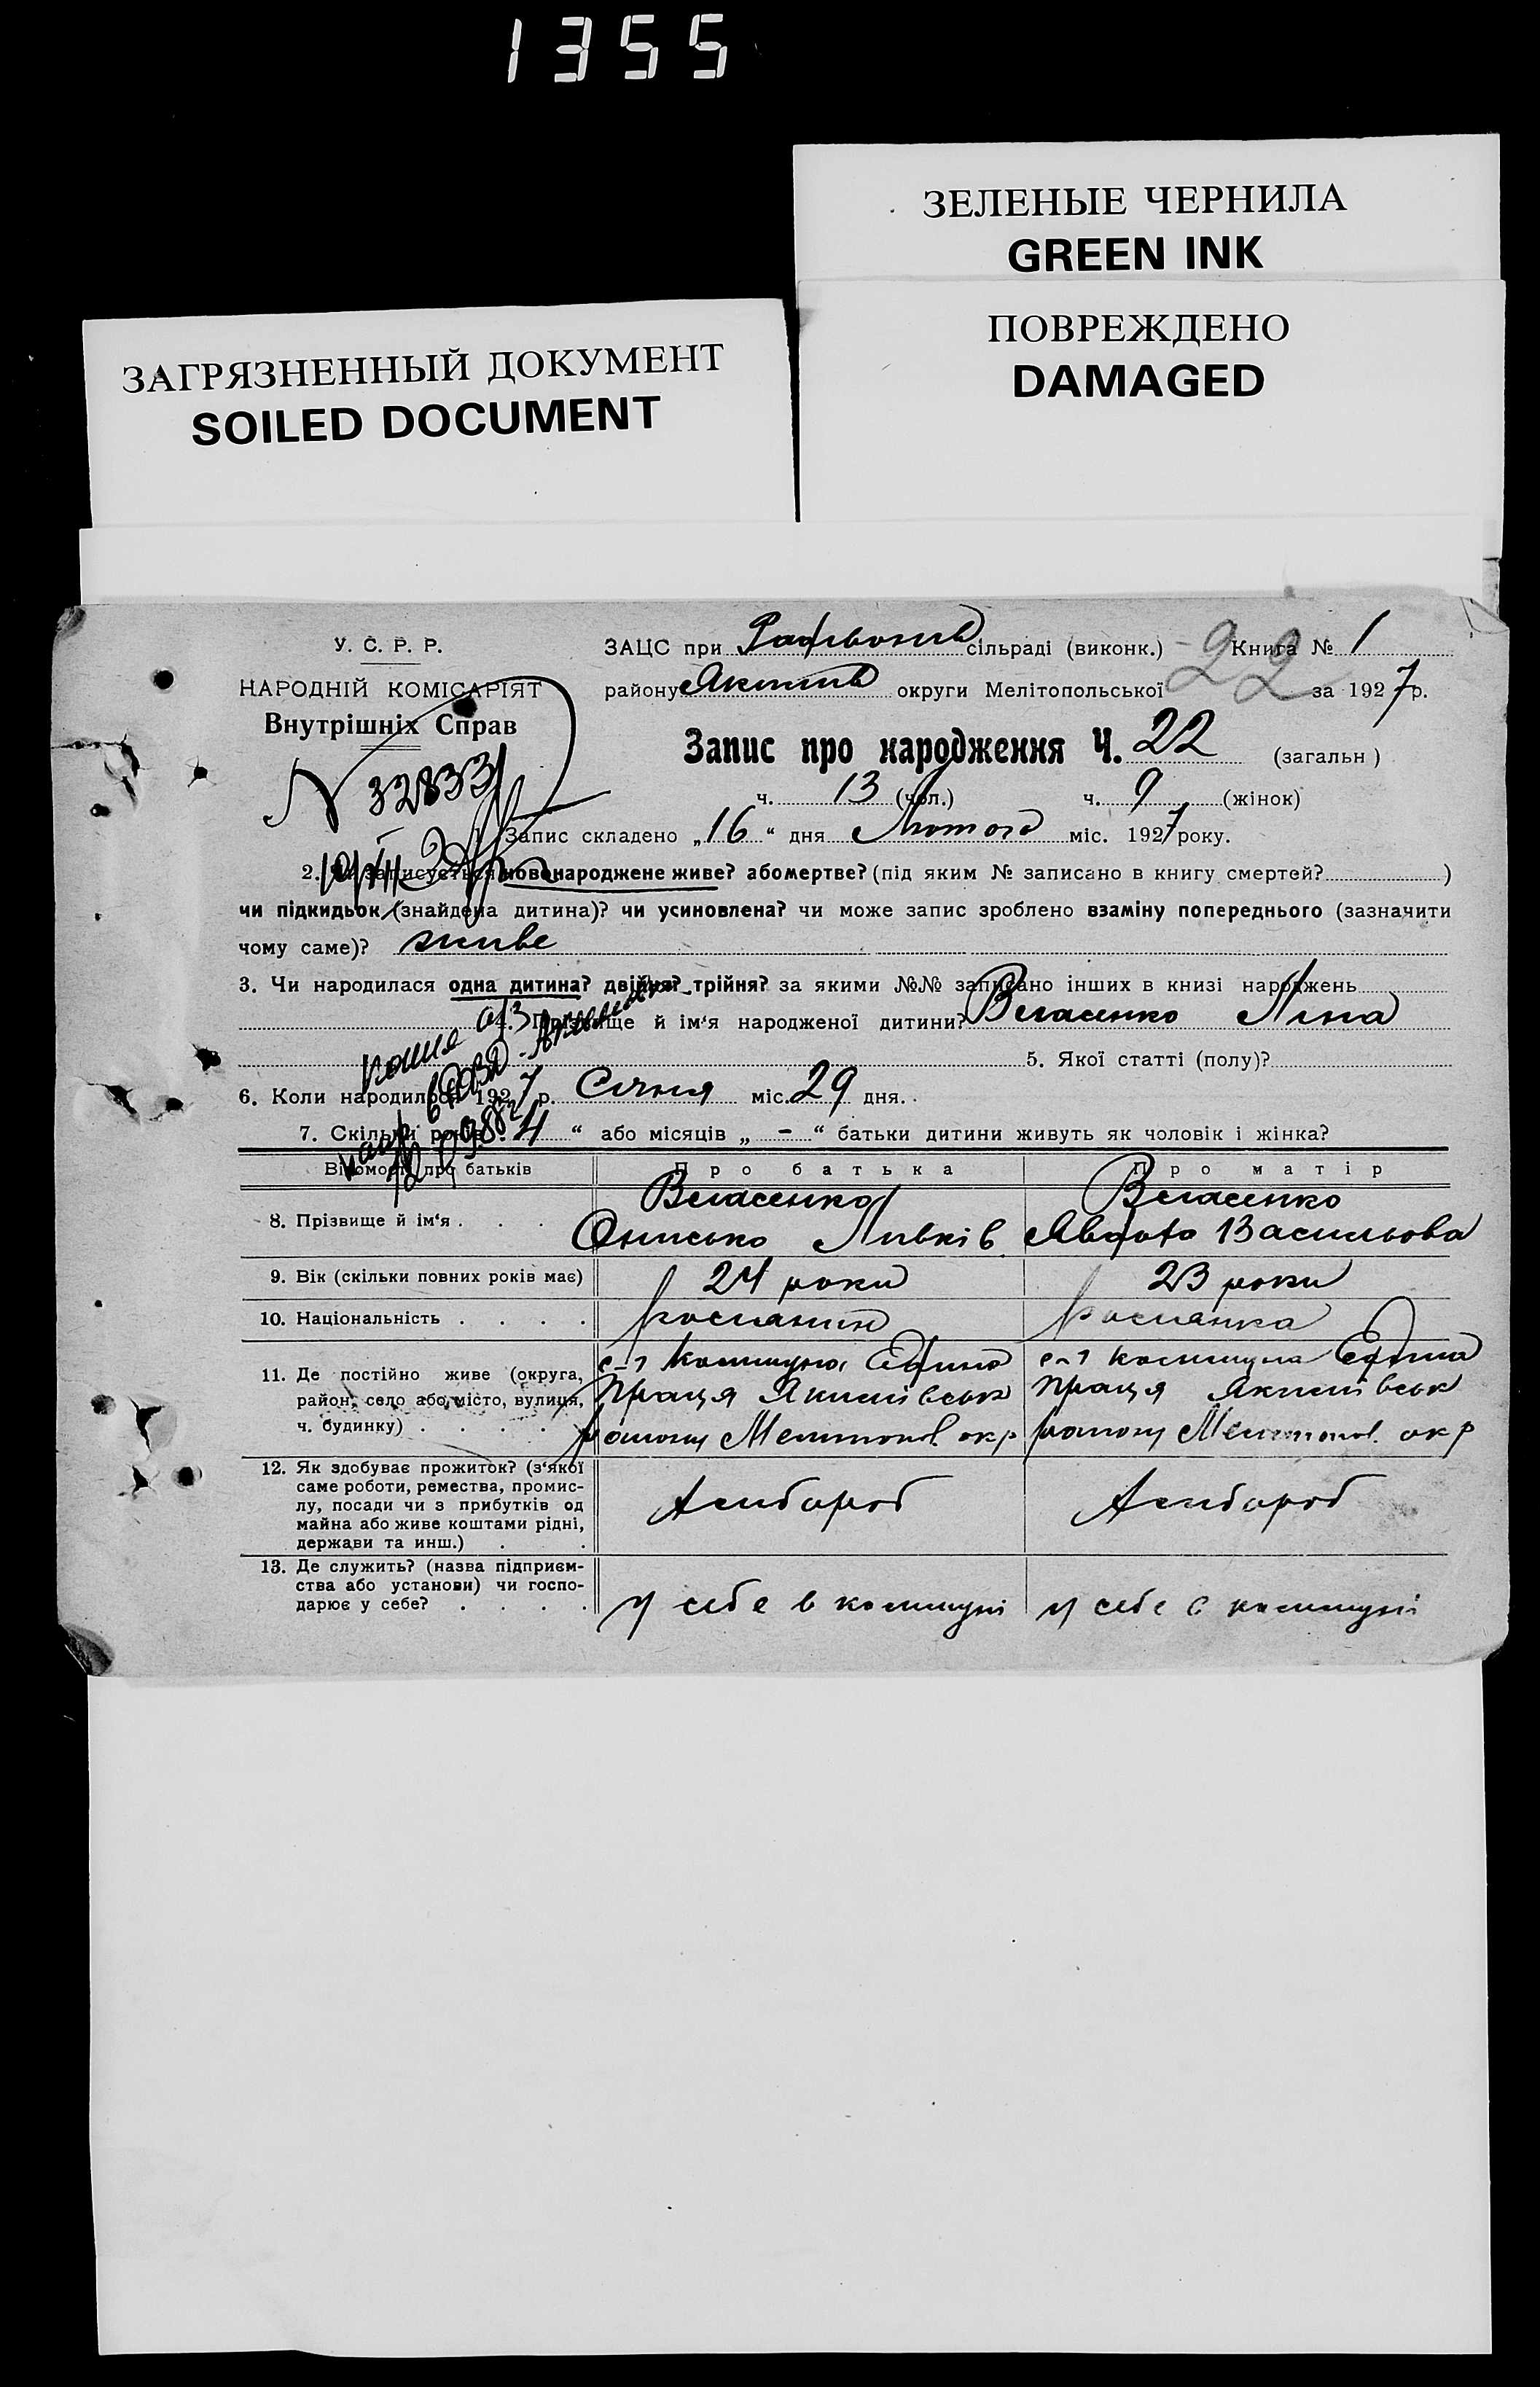 1355
ЗЕЛЕНЫЕ ЧЕРНИЛА
GREEN INK
ПОВРЕЖДЕНО
DAMAGED
ЗАГРЯЗНЕННЫЙ ДОКУМЕНТ
SOILED DOCUMENT
У. С. Р. Р.
НАРОДНІЙ КОМІСАРІЯТ
Внутрішніх Справ
N 32833
ЗАЦС при сільраді (виконк.) 22 Книга № 1
району Якимів округи Мелітопольської за 1927 р.
Запис про народження Ч. 22 (загальн)
ч. 13 (чол.) ч. 9 (жінок)
1. Запис складено „16“ дня Лютого міс. 1927 року.
2. Чи записується новонароджене живе? або мертве? (під яким № записано в книгу смертей? )
чи підкидьок (знайдена дитина)? чи усиновлена? чи може запис зроблено взаміну попереднього (зазначити
чому саме)? живе
3. Чи народилася одна дитина? двійня? трійня? за якими №№ записано інших в книзі народжень
4. Прізвище й ім‘я народженої дитини? Власенко Ліна
5. Якої статті (полу)?
6. Коли народилося 1927 р. Січня міс. 29 дня.
7. Скільки років „4“ або місяців „ - “ батьки дитини живуть як чоловік і жінка?
Відомості про батьків Про батька Про матір
8. Прізвище й ім‘я . . . Власенко Онисько Власенко Васильова
9. Вік (скільки повних років має) 24 роки 23 роки
10. Національність . . . . росианин росианка
11. Де постійно живе (округа,
район, село або місто, вулиця,
ч. будинку) . . . .
с-г коммуна Едина с-г коммуна Едина
Праця Якимівськ Праця Якимівськ
району Мелитопол. окр району Мелитопол. окр
12. Як здобуває прожиток? (з‘якої
саме роботи, ремества, промис-
лу, посади чи з прибутків од
майна або живе коштами рідні,
держави та инш.) . .
Хлибороб Хлибороб
13. Де служить? (назва підприєм-
ства або установи) чи госпо-
дарює у себе? . . . .
у себе в коммуні у себе в коммуні